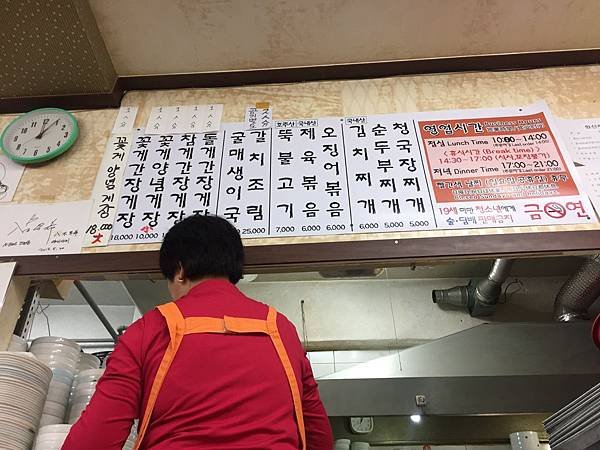 꽃게양념게장
18,000
大
1人分
꽃게간장게장
18,000
1人分
꽃게양념게장
1人分
참게간장게장
1人分
돌게간장게장
굴매생이국
갈치조림
호주산
뚝불고기
7,000
국내산
제육볶음
6,000
오징어볶음
6,000
국내산
김치찌개
6,000
순두부찌개
5,000
청국장찌개
5,000
영업시간 Business Hours
10:00~14:00
점심 Lunch Time
(Break time)
14:30~17:00
17:00~21:00
저녁 Dinner Time
19세 미만 청소년에게
술·담배 판매금지
금연